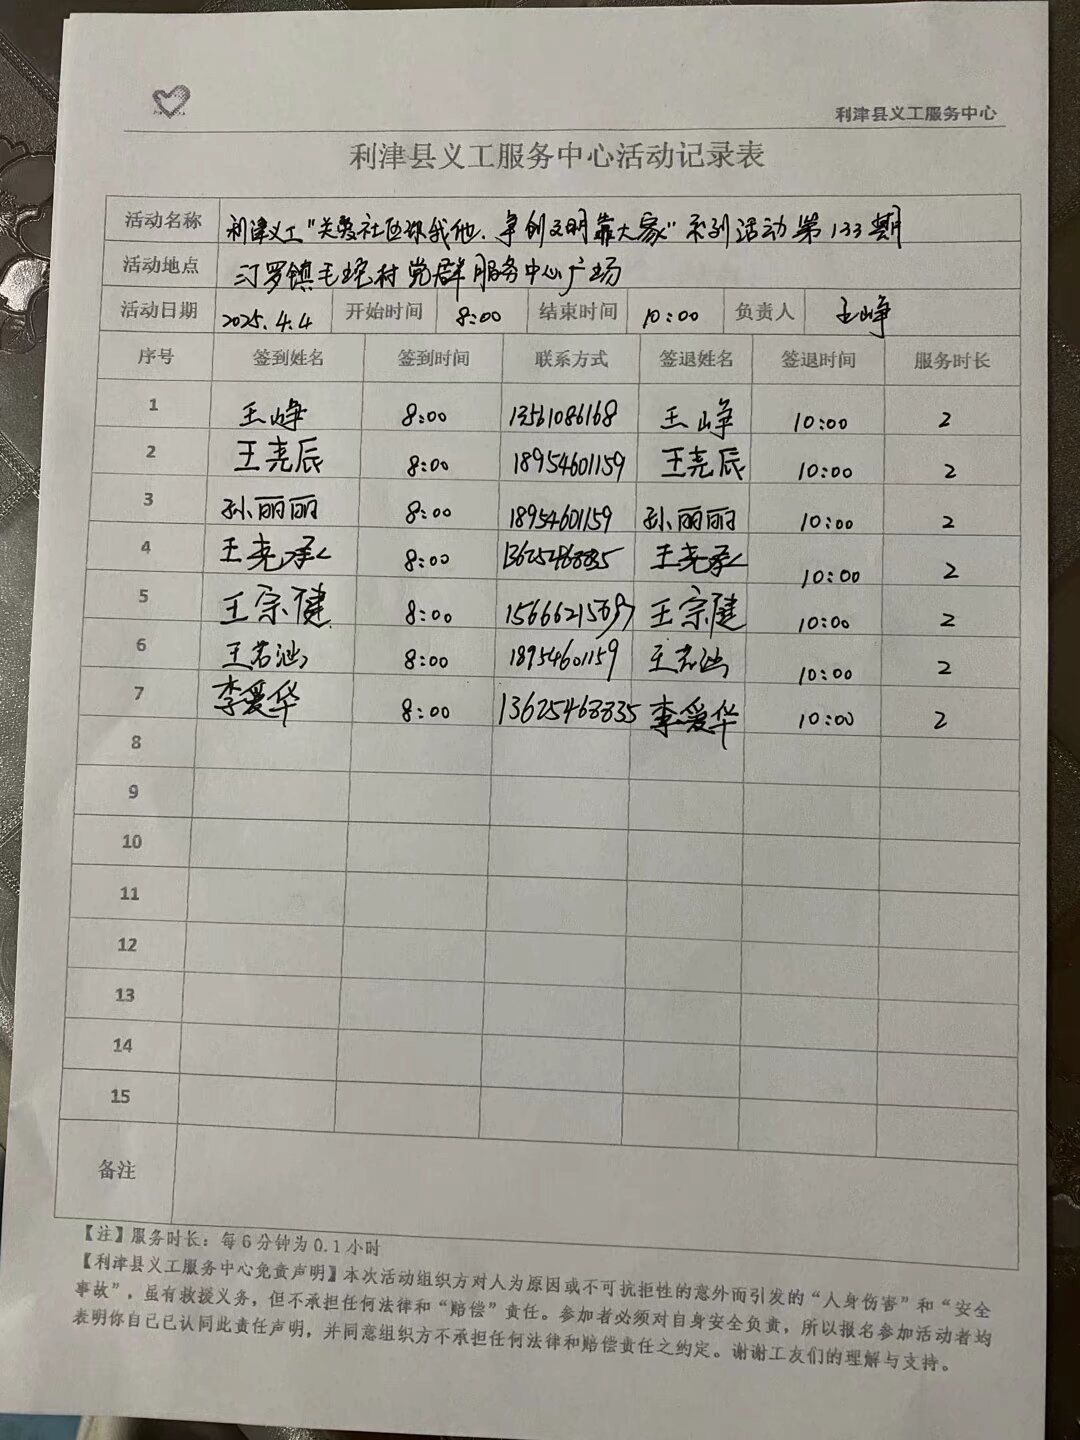 利津县义工服务中心
利津县义工服务中心活动记录表
活动名称 利津义工"关爱社区你我他、争创文明靠大家"系列活动第133期
活动地点 汀罗镇毛坨村党群服务中心广场
活动日期 2025.4.4 开始时间 8:00 结束时间 10:00 负责人 王峥
序号 签到姓名 签到时间 联系方式 签退姓名 签退时间 服务时长
1 王峥 8:00 13561086168 王峥 10:00 2
2 王尧辰 8:00 18954601159 王尧辰 10:00 2
3 孙丽丽 8:00 18954601159 孙丽丽 10:00 2
4 王尧承 8:00 13625468835 王尧承 10:00 2
5 王宗健 8:00 王宗健 10:00 2
6 王若汕 8:00 18954601159 王若汕 10:00 2
7 李爱华 8:00 13625468835 李爱华 10:00 2
8
9
10
11
12
13
14
15
备注
【注】服务时长：每6分钟为0.1小时
【利津县义工服务中心免责声明】本次活动组织方对人为原因或不可抗拒性的意外而引发的“人身伤害”和“安全
事故”，虽有救援义务，但不承担任何法律和“赔偿”责任。参加者必须对自身安全负责，所以报名参加活动者均
表明你自己已认同此责任声明，并同意组织方不承担任何法律和赔偿责任之约定。谢谢工友们的理解与支持。